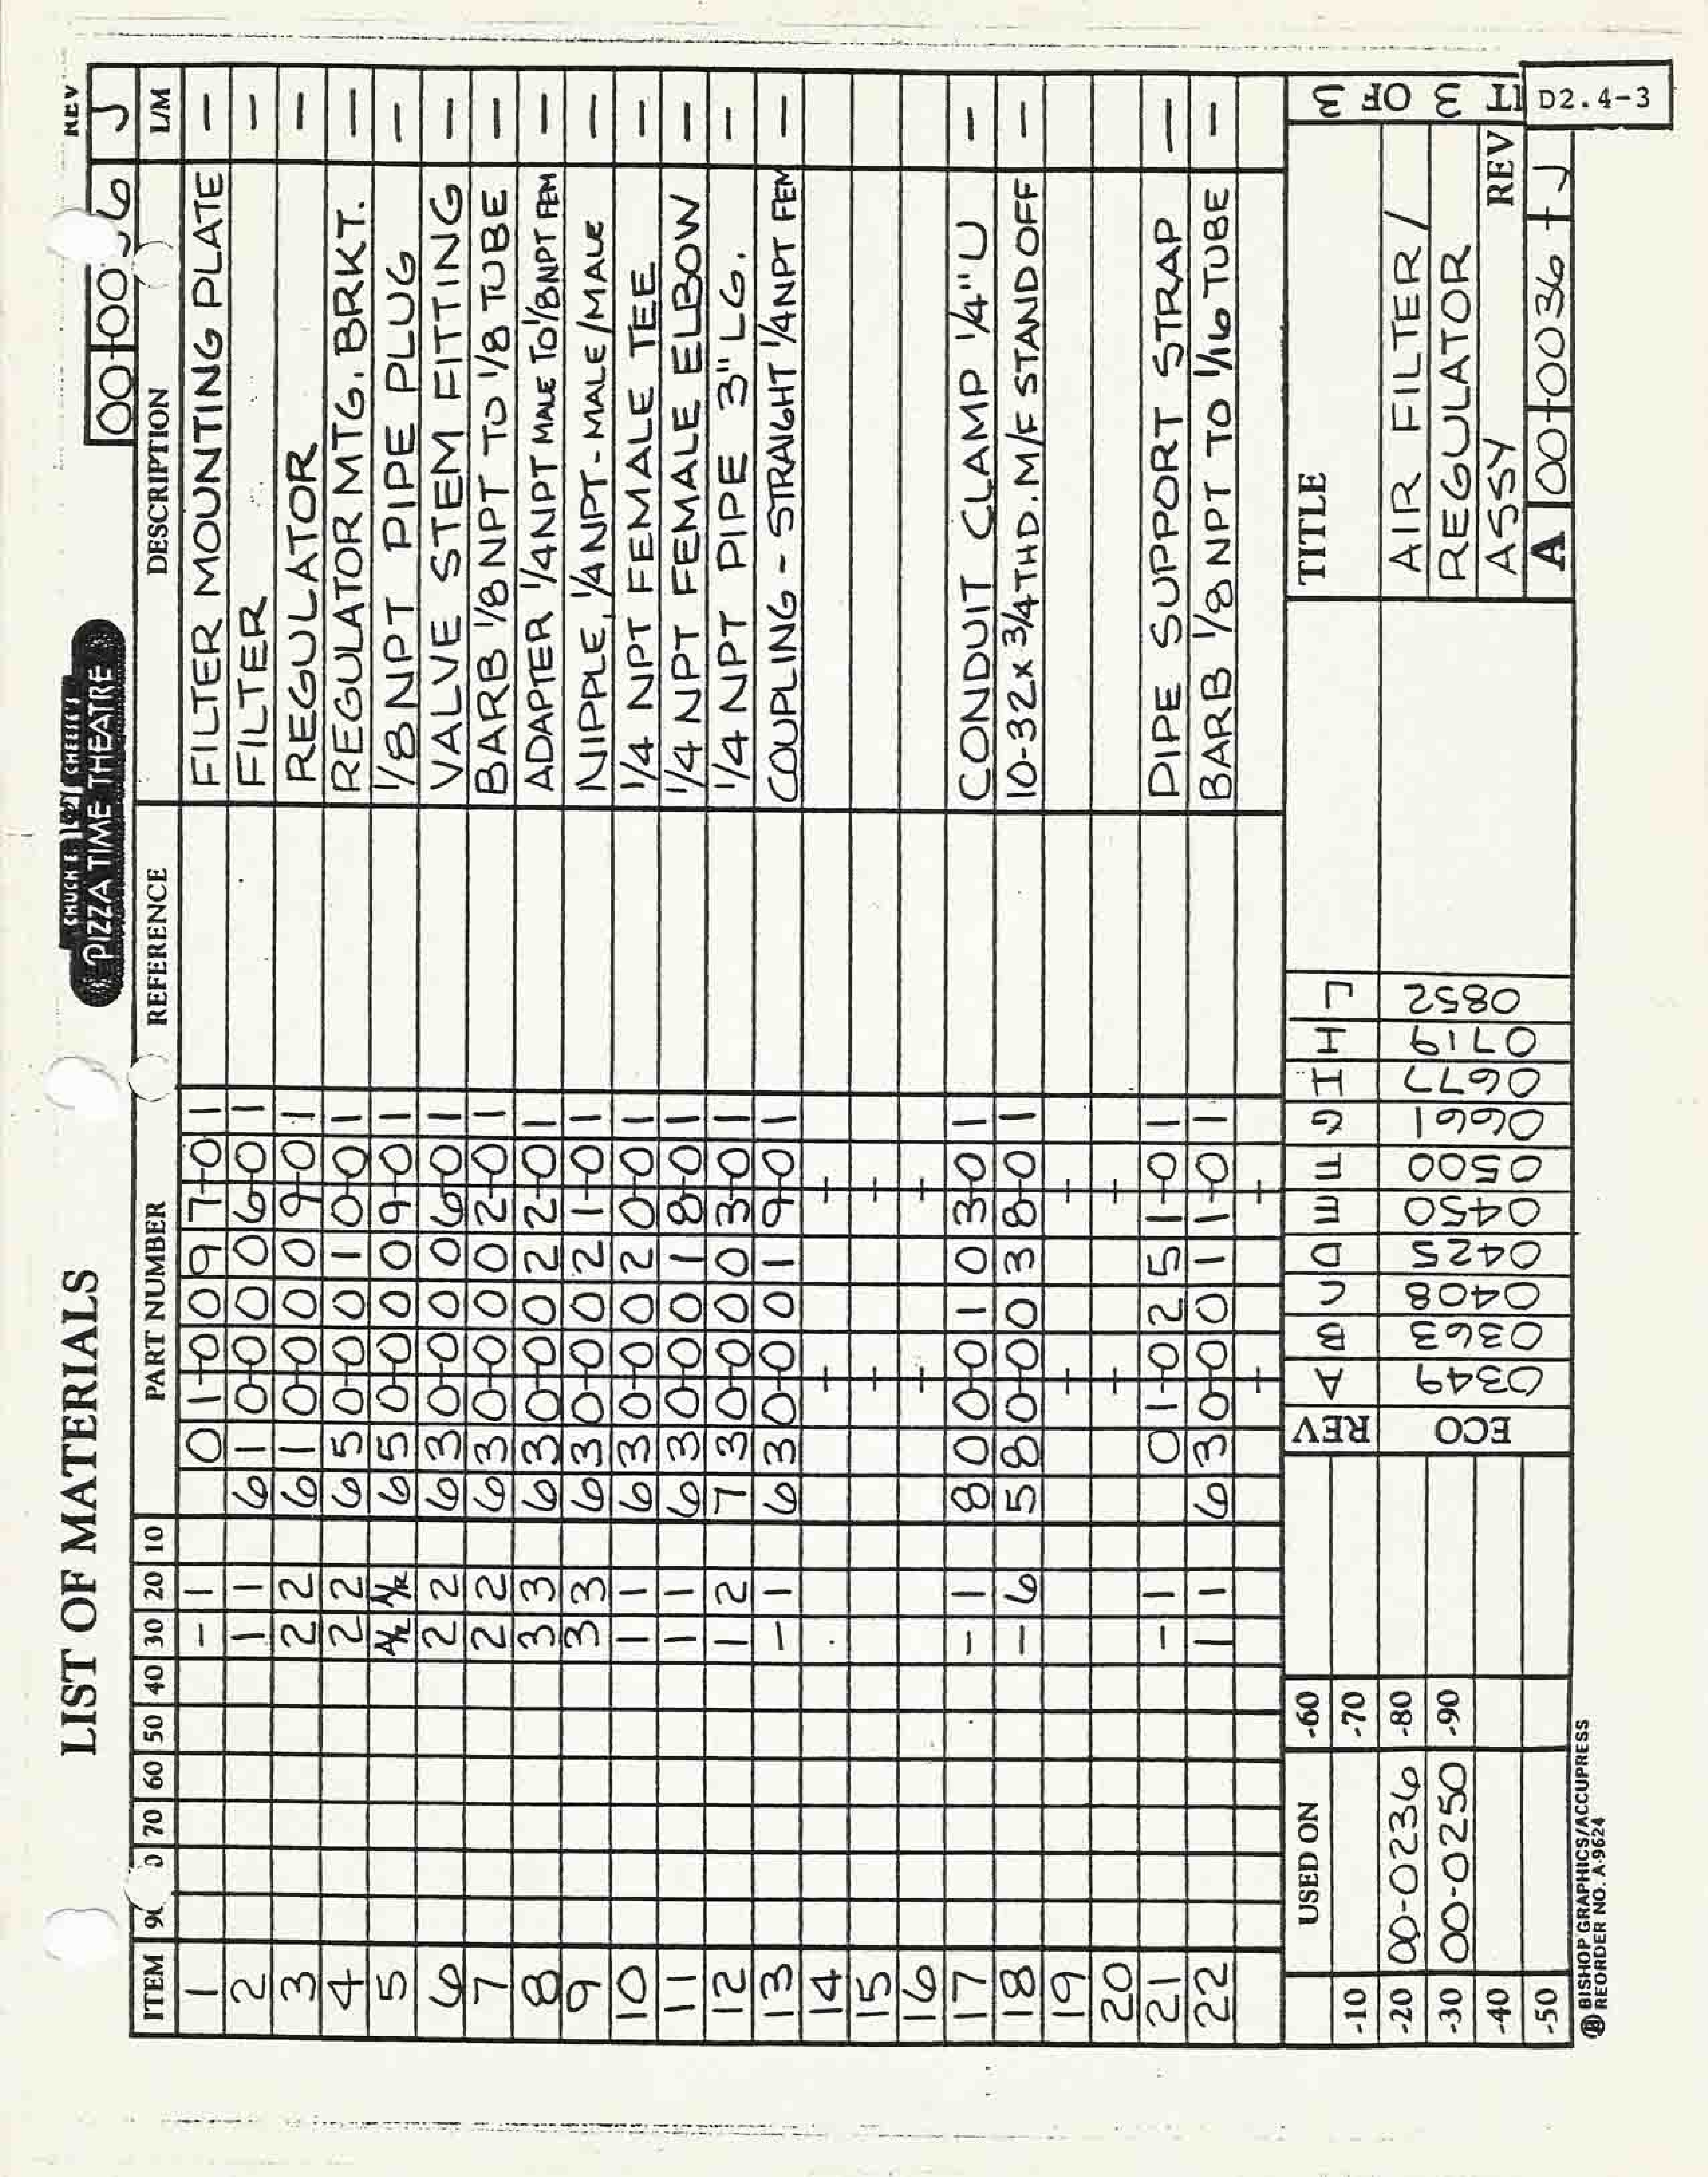 LIST OF MATERIALS
CHUCK E. CHEESE'S
PIZZA TIME THEATRE
REV
00-0036 J
ITEM 70 60 50 40 30 20 10 PART NUMBER REFERENCE DESCRIPTION L/M
1 - 1 01-0097-01 FILTER MOUNTING PLATE -
2 1 1 610-0006-01 FILTER -
3 2 2 610-0009-01 REGULATOR -
4 2 2 650-0010-01 REGULATOR MTG. BRKT. -
5 A/R A/R 650-0009-01 1/8 NPT PIPE PLUG -
6 2 2 630-0006-01 VALVE STEM FITTING -
7 2 2 630-0002-01 BARB 1/8 NPT TO 1/8 TUBE -
8 3 3 630-0022-01 ADAPTER 1/4NPT MALE TO 1/8NPT FEM -
9 3 3 630-0021-01 NIPPLE, 1/4NPT - MALE/MALE -
10 1 1 630-0020-01 1/4 NPT FEMALE TEE -
11 1 1 630-0018-01 1/4 NPT FEMALE ELBOW -
12 1 2 730-0003-01 1/4 NPT PIPE 3" LG. -
13 - 1 630-0019-01 COUPLING - STRAIGHT 1/4NPT FEM -
14
15
16
17 - 1 800-0103-01 CONDUIT CLAMP 1/4" U -
18 - 6 580-0038-01 10-32 x 3/4 THD. M/F STANDOFF -
19
20
21 - 1 01-0251-01 PIPE SUPPORT STRAP -
22 1 1 630-0011-01 BARB 1/8 NPT TO 1/16 TUBE -
USED ON
-10
-20 00-0236
-30 00-0250
-40
-50
-60
-70
-80
-90
REV ECO
A 0349
B 0363
C 0408
D 0425
E 0450
F 0500
G 0661
H 0677
I 0719
J 0852
TITLE
AIR FILTER /
REGULATOR
ASSY
REV
A 00-0036 - J
3 OF 3
D2.4-3
BISHOP GRAPHICS/ACCUPRESS
REORDER NO. A-9624